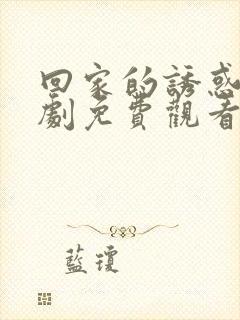 回家的誘惑
劇免費觀看
藍瓊